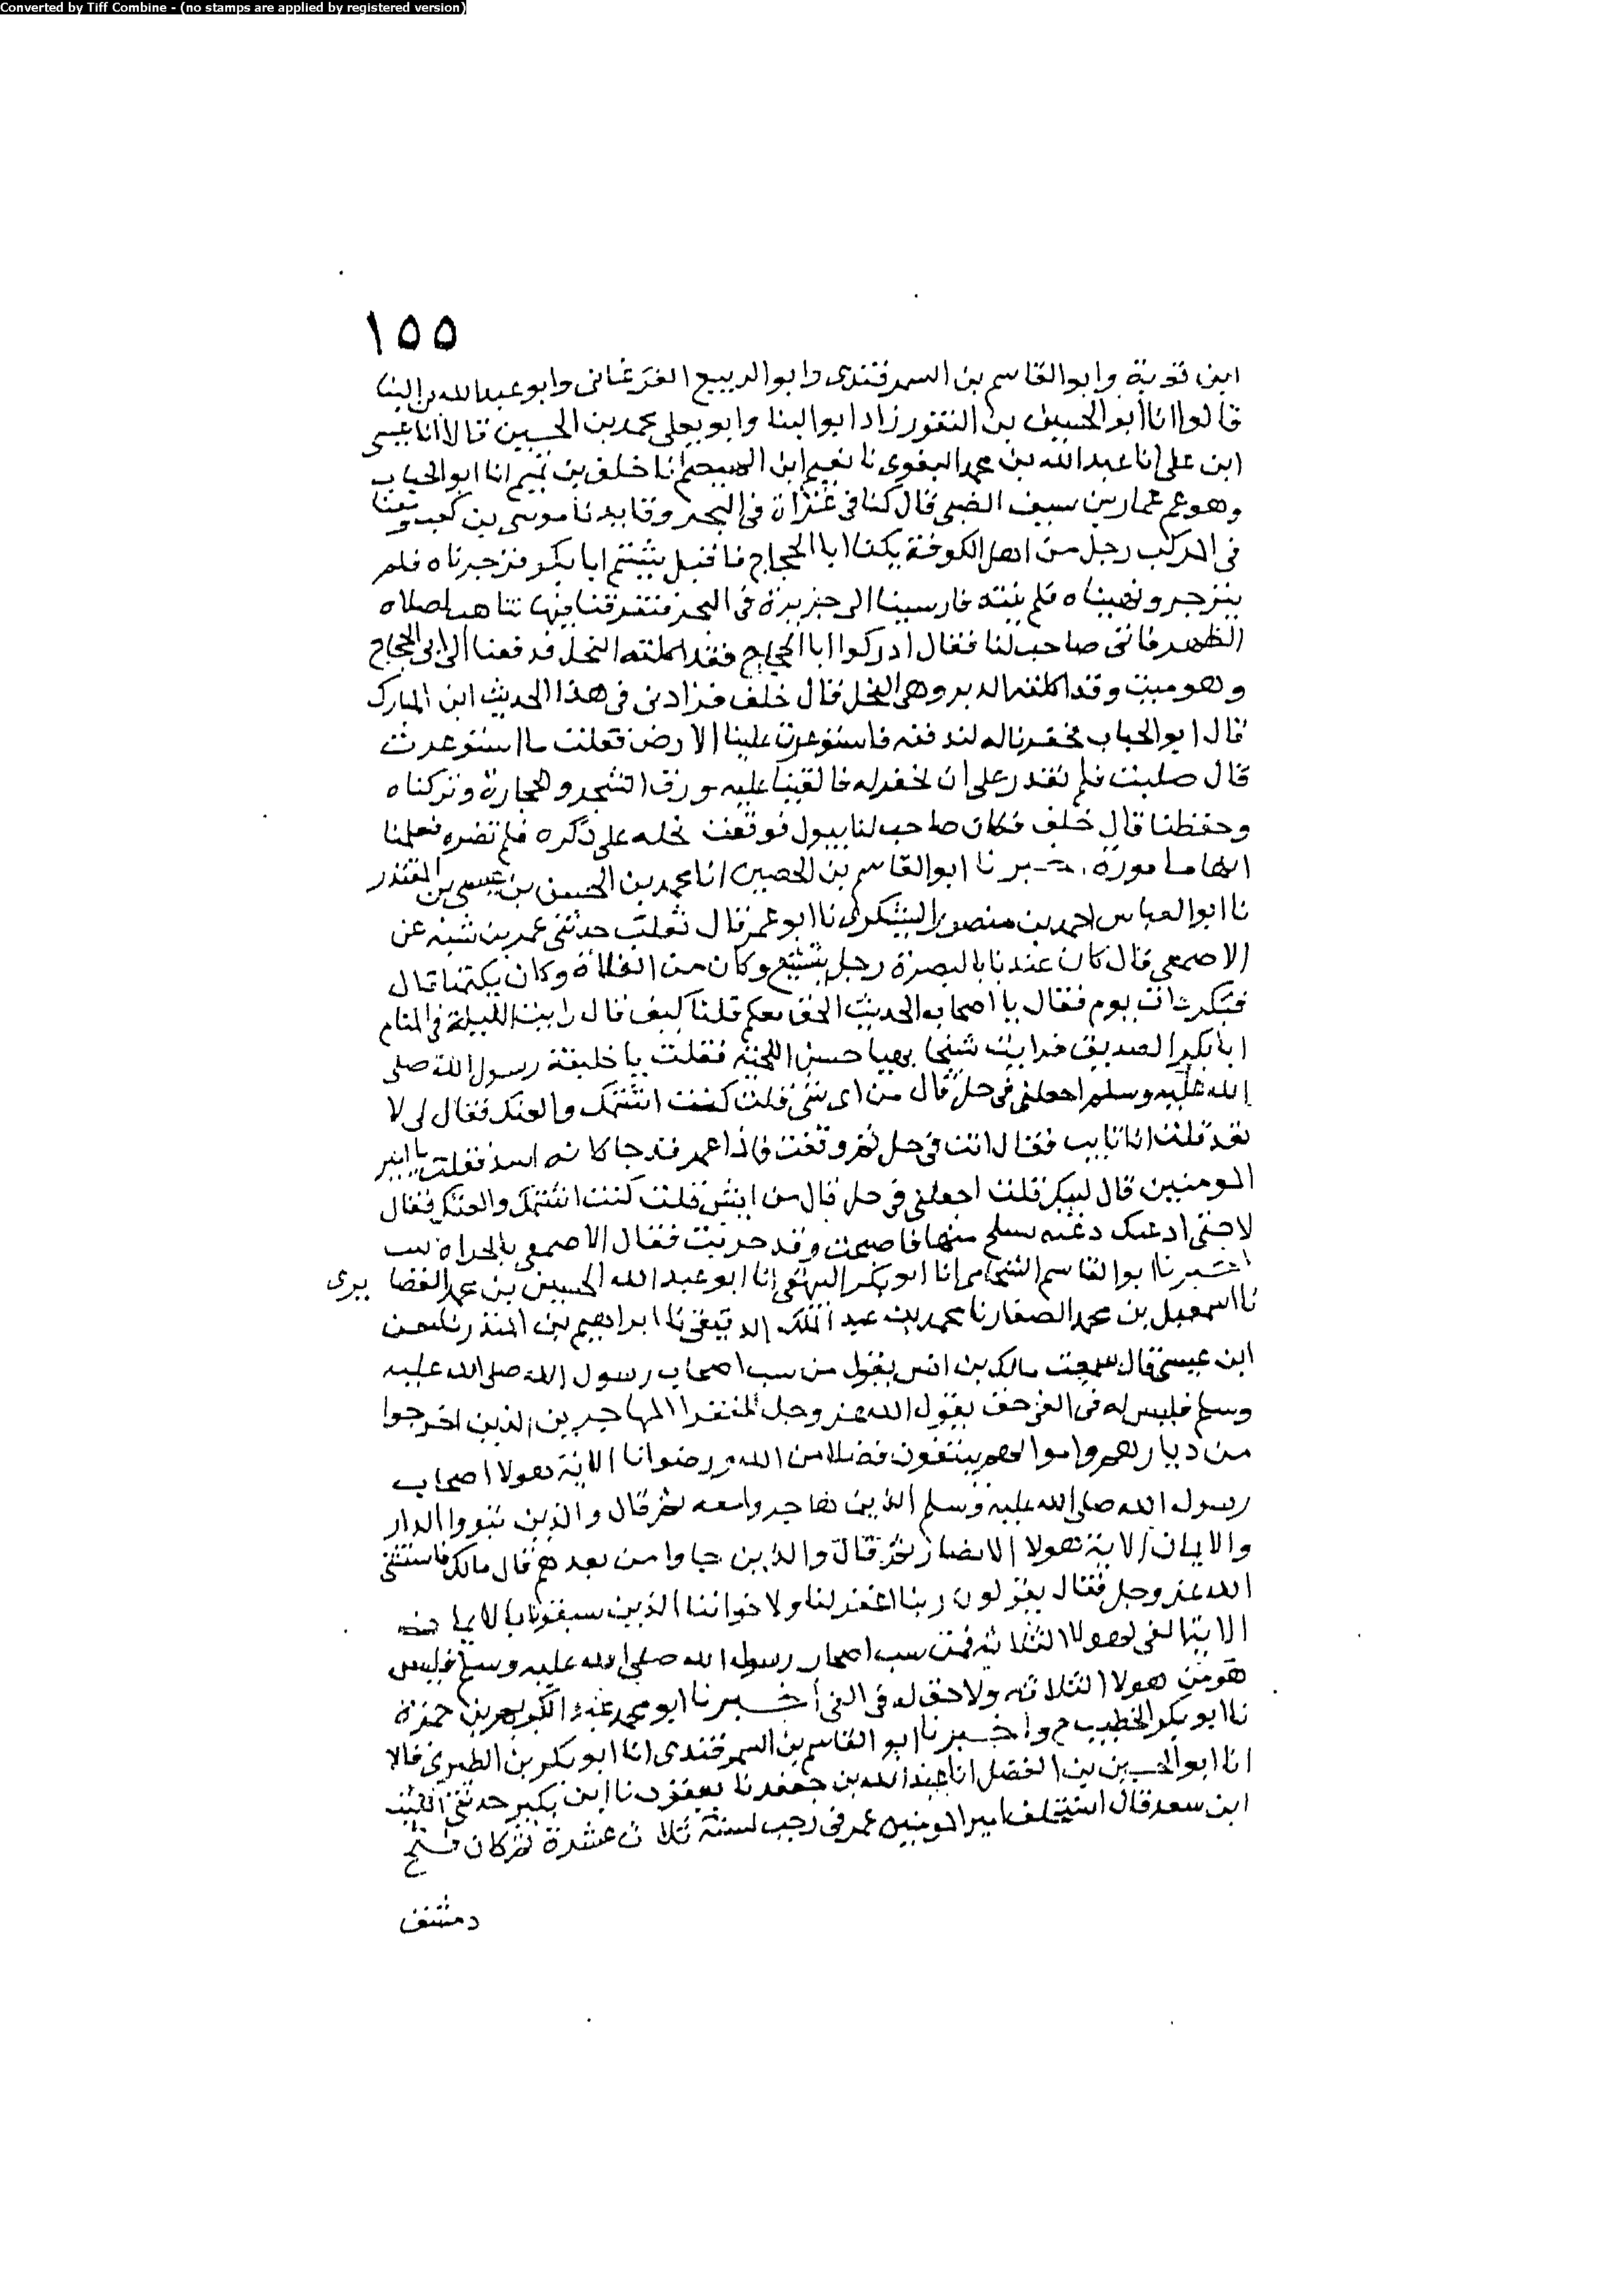 Converted by Tiff Combine - (no stamps are applied by registered version)
١٥٥
ابن توبة وابو القاسم بن السمرقندى وابو الربيع الفرغانى وابو عبد الله بن البنا
قالوا انا ابو الحسين بن النقور زاد ابو البنا وابو يعلى محمد بن الحسين قالا انا عيسى
ابن على انا عبد الله بن محمد البغوى نا نعيم ابن الهيصم انا خلف بن تميم انا ابو الحباب
وهو عم عمار بن سيف الضبى قال كنا فى غزاة فى البحر وقايدنا موسى بن كعب ومعنا
فى المركب رجل من اهل الكوفة يكنا ابا الحجاج فاقبل يشتم ابا بكر فزجرناه فلم
ينزجر ونهيناه فلم ينته فارسينا الى جزيرة فى البحر فتفرقنا فيها نتاهب لصلاه
الظهر فاتى صاحب لنا فقال ادركوا ابا الحجاج فقد اكلته النحل فدفعنا الى ابى الحجاج
وهو ميت وقد اكلته الدبر وهى النحل قال خلف فزادنى فى هذا الحديث ابن المبارك
قال ابو الحباب فحفرنا له لندفنه فاستوعرت علينا الارض فقلت ما استوعرت
قال صلبت فلم نقدر على ان نحفر له فالقينا عليه ورق الشجر والحجارة وتركناه
وحفظنا قال خلف فكان صاحب لنا يبول فوقعت نحله على ذكره فلم تضره فعلمنا
انها مامورة . اخبرنا ابو القاسم بن الحصين انا محمد بن الحسن بن عيسى بن المقتدر
نا ابو العباس احمد بن منصور اليشكرى نا ابو عمر قال ثعلب حدثنى عمر بن شبه عن
الاصمعى قال كان عندنا بالبصرة رجل يتشيع وكان من الغلاة وكان يكتمنا قال
فبكر ذات يوم فقال يا اصحاب الحديث الحق معكم قلنا كيف قال رايت الليلة فى المنام
ابا بكر الصديق فرايت شيخا بهيا حسن اللحية فقلت يا خليفة رسول الله صلى
الله عليه وسلم اجعلنى فى حل قال من اى شى قلت كنت اشتمك والعنك فقال لى لا
تعد قلت انا تايب فقال انت فى حل ثم وقفت فاذا عمر قد جا كانه اسد فقلت يا امير
المومنين قال لبيك قلت اجعلنى فى حل قال من ايش قلت كنت اشتمك والعنك فقال
لا حتى ادعك دغنه تسلح منها فاصبحت وقد خريت فقال الاصمعى بالخراه تبت
اخبرنا ابو القاسم الشحامى انا ابو بكر البيهقى انا ابو عبد الله الحسين بن محمد الغضايرى
نا اسمعيل بن محمد الصفار نا محمد بن عبد الملك الدقيقى نا ابراهيم بن المنذر نا معن
ابن عيسى قال سمعت مالك بن انس يقول من سب اصحاب رسول الله صلى الله عليه
وسلم فليس له فى الفى حق يقول الله عز وجل للفقرا المهاجرين الذين اخرجوا
من ديارهم واموالهم يبتغون فضلا من الله ورضوانا الاية هولا اصحاب
رسول الله صلى الله عليه وسلم الذين هاجروا معه ثم قال والذين تبووا الدار
والايمان الاية هولا الانصار ثم قال والذين جاوا من بعدهم قال مالك فاستثنى
الله عز وجل فقال يقولون ربنا اغفر لنا ولاخواننا الذين سبقونا بالايمان
الاية الفى لهولا الثلاثة فمن سب اصحاب رسول الله صلى الله عليه وسلم فليس
هو من هولا الثلاثه ولا حق له فى الفى اخبرنا ابو محمد عبد الكريم بن حمزة
نا ابو بكر الخطيب ح واخبرنا ابو القاسم بن السمرقندى انا ابو بكر بن الطبرى قالا
انا ابو الحسين بن الفضل انا عبد الله بن جعفر نا يعقوب نا ابن بكير حدثنى الليث
ابن سعد قال استخلف امير المومنين عمر فى رجب لسنة ثلاث عشرة ثم كان فتح
دمشق